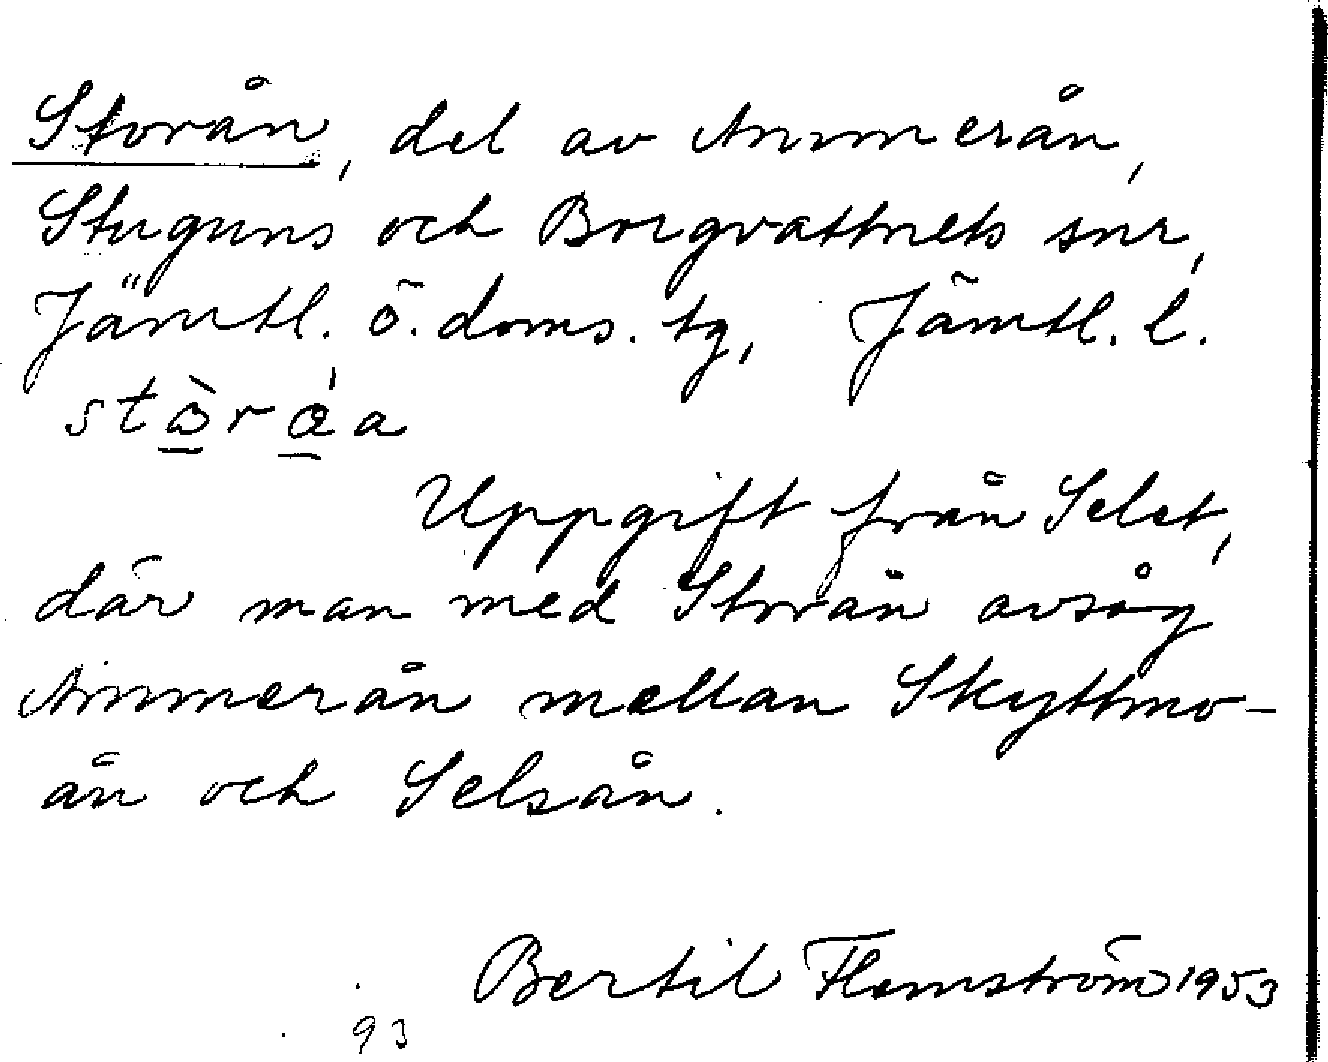 Storån, del av Ammerån,
Stuguns och Borgvattnets snr,
Jämtl. ö. doms. tg, Jämtl. l.
Uppgift från Selet,
där man med Storån avsåg
Ammerån mellan Skyttmo-
ån och Selsån.
Bertil Flemström 1953
93